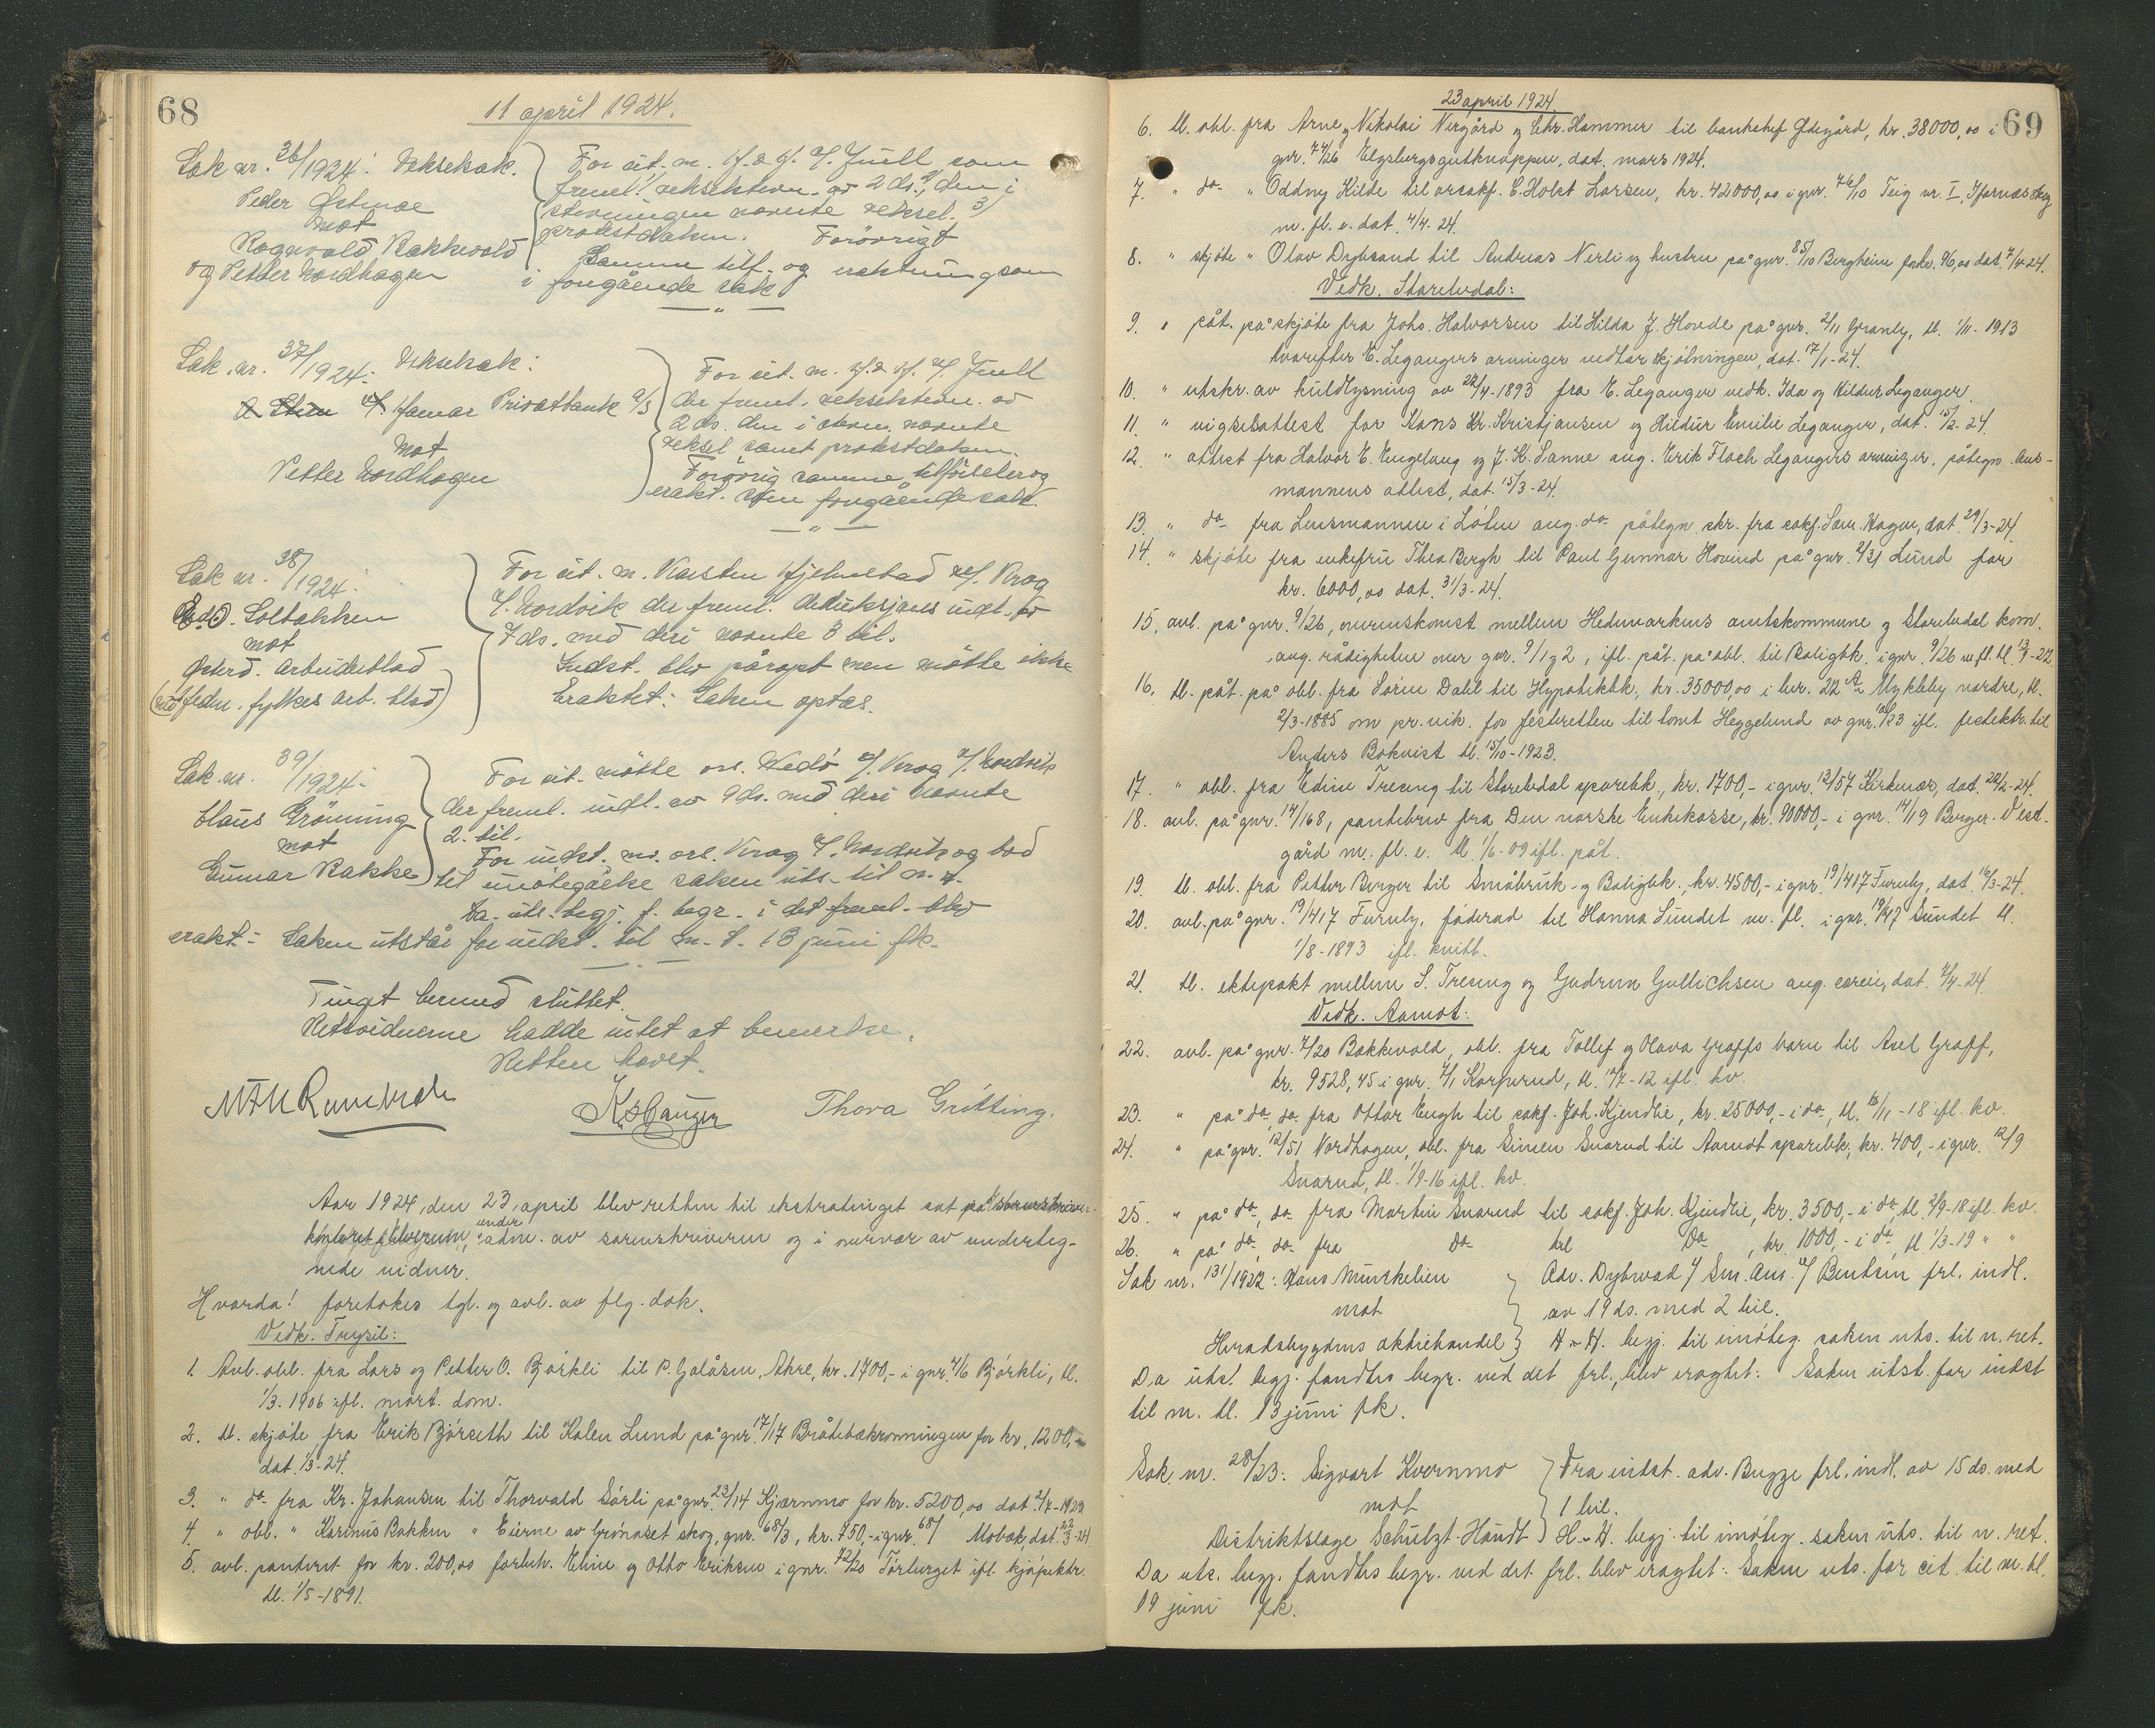 68
11 april 1924.
Sak nr. 36/1924: Vekselsak.
Peder Østmoe
mot
Ragnvald Bakkevold
og Petter Nordhagen
For cit. m. f. Juell som
freml. vekselstevn. av 2 ds., den i
stevningen nævnte veksel. 3/
protestdaten. Forøvrigt
Samme tilf. og eraktning som
i forrgående sak
— " —
Sak nr. 37/1924: Vekselsak:
Hamar Privatbank A/S
mot
Petter Nordhagen
For cit. m. Juell
der freml. vekselstevn. av
2 ds. den i stevn. nævnte
veksel samt protestdaten.
Forøvrig samme tilførsler og
erakt. som forrgående sak.
— " —
Sak nr. 38/1924:
Ed. Soltakken
mot
Østerd. Arbeiderblad
(ved Hedm. fylkes arb. blad)
For cit. m. Karsten Hjelmstad v/f. Krog
f. Nordvik der freml. deduksjons indl. av
7 ds. med deri nævnte 3 bil.
Indst. blev påropt men møtte ikke
Eraktet: Saken optas.
Sak nr. 39/1924:
Claus Grönning
mot
Gunnar Bakke
For cit. møtte ors. Vedø f/ Krog f/ Nordvik
der freml. indl. av 9 ds. med deri nævnte
2 bil.
For indst. m. ors. Krog f. Nordvik og bad
til imøtegåelse saken uts. til n. r.
Da uts. begj. f. begr. i det freml. blev
erakt: Saken utstår for indst. til m. t. 13 juni fk.
— . —
Tinget hermed sluttet.
Rettsvidnerne hadde intet at bemerke.
Retten hævet.
Thora Grötting.
Aar 1924, den 23. april blev retten til ekstratinget sat på Sorenskriver-
kontoret i Elverum, under adm. av sorenskriveren og i nærvær av underteg-
nede vidner.
Hvorda! foretokes tgl. og avl. av flg. dok.
Vedk. Trysil:
1. Avl. obl. fra Lars og Petter O. Bjørkli til P. Galåsen, Akre, kr. 1700,- i gnr. 4/6 Bjørkli, tl.
1/3-1906 ifl. mort. dom.
2. tl. skjøte fra Erik Bjørseth til Kalen Lund på gnr. 17/17 Bråtebakrønningen for kr. 1200,-
dat. 1/3-24.
3. " do fra Kr. Johansen til Thorvald Sørli på gnr. 23/14 Kjærnmo for kr. 5200,00 dat. 2/7-1922
4. " obl. " Karinus Bakken " Eierne av Grønaset skog, gnr. 68/3, kr. 750,- i gnr. 68/ Mobæk, dat. 22/3-24
5. avl. panterett for kr. 200,00 forbeh. Eline og Otto Eriksen i gnr. 72/20 Törberget ifl. kjøpektr.
tl. 1/5-1891.
23 april 1924.
69
6. tl. obl. fra Arne og Nikolai Nergård og Chr. Hammer til bankchef Ødegård, kr. 38000,00 i
gnr. 74/26 Elgsbergsgutknappen, dat. mars 1924.
7. " do " Oddny Kilde til orsakf. C. Holst Larsen, kr. 42000,00 i gnr. 76/10 Teig nr. I, Ifarnæs skog
m. fl. e. dat. 4/4-24.
8. " skjøte " Olav Dybsand til Andreas Nerli og hustru på gnr. 85/10 Bergheim for kr. 96,00 dat. 7/4-24.
Vedk. Storelvdal:
9. " påt. på skjøte fra Johs. Halvorsen til Hilda J. Hovde på gnr. 2/11 Granly, tl. 1/11-1913
hvorefter E. Legangers arvinger vedtar skjøtningen, dat. 17/1-24.
10. " utskr. av kuldlysning av 22/4-1893 fra E. Leganger vedk. Ida og Hildur Leganger.
11. " vigselsattest for Hans Kr. Kristjansen og Hildur Emilie Leganger, dat. 15/2-24.
12. " attest fra Halvor E. Engelaug og J. K. Sanne ang. Erik Floch Legangers arvinger, påtegn. lens-
mannens attest, dat. 15/3-24.
13. " do fra Lensmannen i Løten ang. do påtegn skr. fra sakf. Sam. Hagen, dat. 29/3-24.
14. " skjøte fra enkefru Thea Bergh til Paul Gunnar Hovind på gnr. 2/31 Lund for
kr. 6000,00 dat. 31/3-24.
15. avl. på gnr. 9/26, overenskomst mellem Hedmarkens amtskommune og Storelvdal kom.
ang. rådigheten over gnr. 9/1 og 2, ifl. påt. på obl. til Boligbk. i gnr. 9/26 m fl. tl. 13/9-22
16. tl. påt. på obl. fra Søren Dahl til Hypotekbk., kr. 35000,00 i lnr. 22 A Mykleby nordre, tl.
2/3-1885 om pr. vik. for festeretten til tomt Heggelund av gnr. 10/23 ifl. festektr. til
Anders Bokvist tl. 15/10-1923.
17. " obl. fra Edin Treseng til Storelvdal sparebk., kr. 1700,- i gnr. 12/57 Kirkmo, dat. 22/2-24.
18. avl. på gnr. 14/168, pantebrev fra Den norske Enkekasse, kr. 90000,- i gnr. 14/19 Berger-Vest-
gård m. fl. e. tl. 1/6-09 ifl. påt.
19. tl. obl. fra Petter Berger til Småbruk- og Boligbk., kr. 4500,- i gnr. 19/417 Furuly, dat. 16/3-24.
20. avl. på gnr. 19/417 Furuly, føderad til Hanna Sundet m. fl. i gnr. 19/47 Sundet tl.
1/8-1893 ifl. kvitt.
21. tl. ektepakt mellem S. Treseng og Gudrun Gullichsen ang. særeie, dat. 7/4-24.
Vedk. Aamot:
22. avl. på gnr. 7/20 Bakkevold, obl. fra Tollef og Olava Graffs barn til Axel Graff,
kr. 9528,45 i gnr. 7/1 Korperud, tl. 10/7-12 ifl. kv.
23. " på do, do fra Ottar Engh til sakf. Joh. Kjendlie, kr. 25000,- i do, tl. 16/11-18 ifl. kv.
24. " på gnr. 12/51 Nordhagen, obl. fra Simen Snarud til Aamot sparebk., kr. 400,- i gnr. 12/9
Snarud, tl. 1/9-16 ifl. kv.
25. " på do, do fra Martin Snarud til sakf. Joh. Kjendlie, kr. 3500,- i do, tl. 2/9-18 ifl. kv.
26. " på do, do fra do til do, kr. 1000,- i do, tl. 1/3-19 " "
Sak nr. 131/1922: Hans Munkelien
mot
Heradsbygdens aktiehandel
Adv. Dybwad f/ Sm. Aas. f/ Bentsen frl. indl.
av 19 ds. med 2 bil.
H. A. begj. til imøteg. saken uts. til n. ret.
Da utst. begj. fandtes begr. ved det frl., blev eragtet: Saken utst. for indst
til m. tl. 13 juni fk.
Sak nr. 28/23: Sigvart Kvernmo
mot
Distriktslæge Schulzt-Haudt
Fra indst. adv. Bugge frl. indl. av 15 ds. med
1 bil.
H. A. begj. til imøteg. saken uts. til n. ret.
Da uts. begj. fandtes begr. ved det frl. blev eragtet: Saken uts. for cit. til m. tl.
19 juni fk.